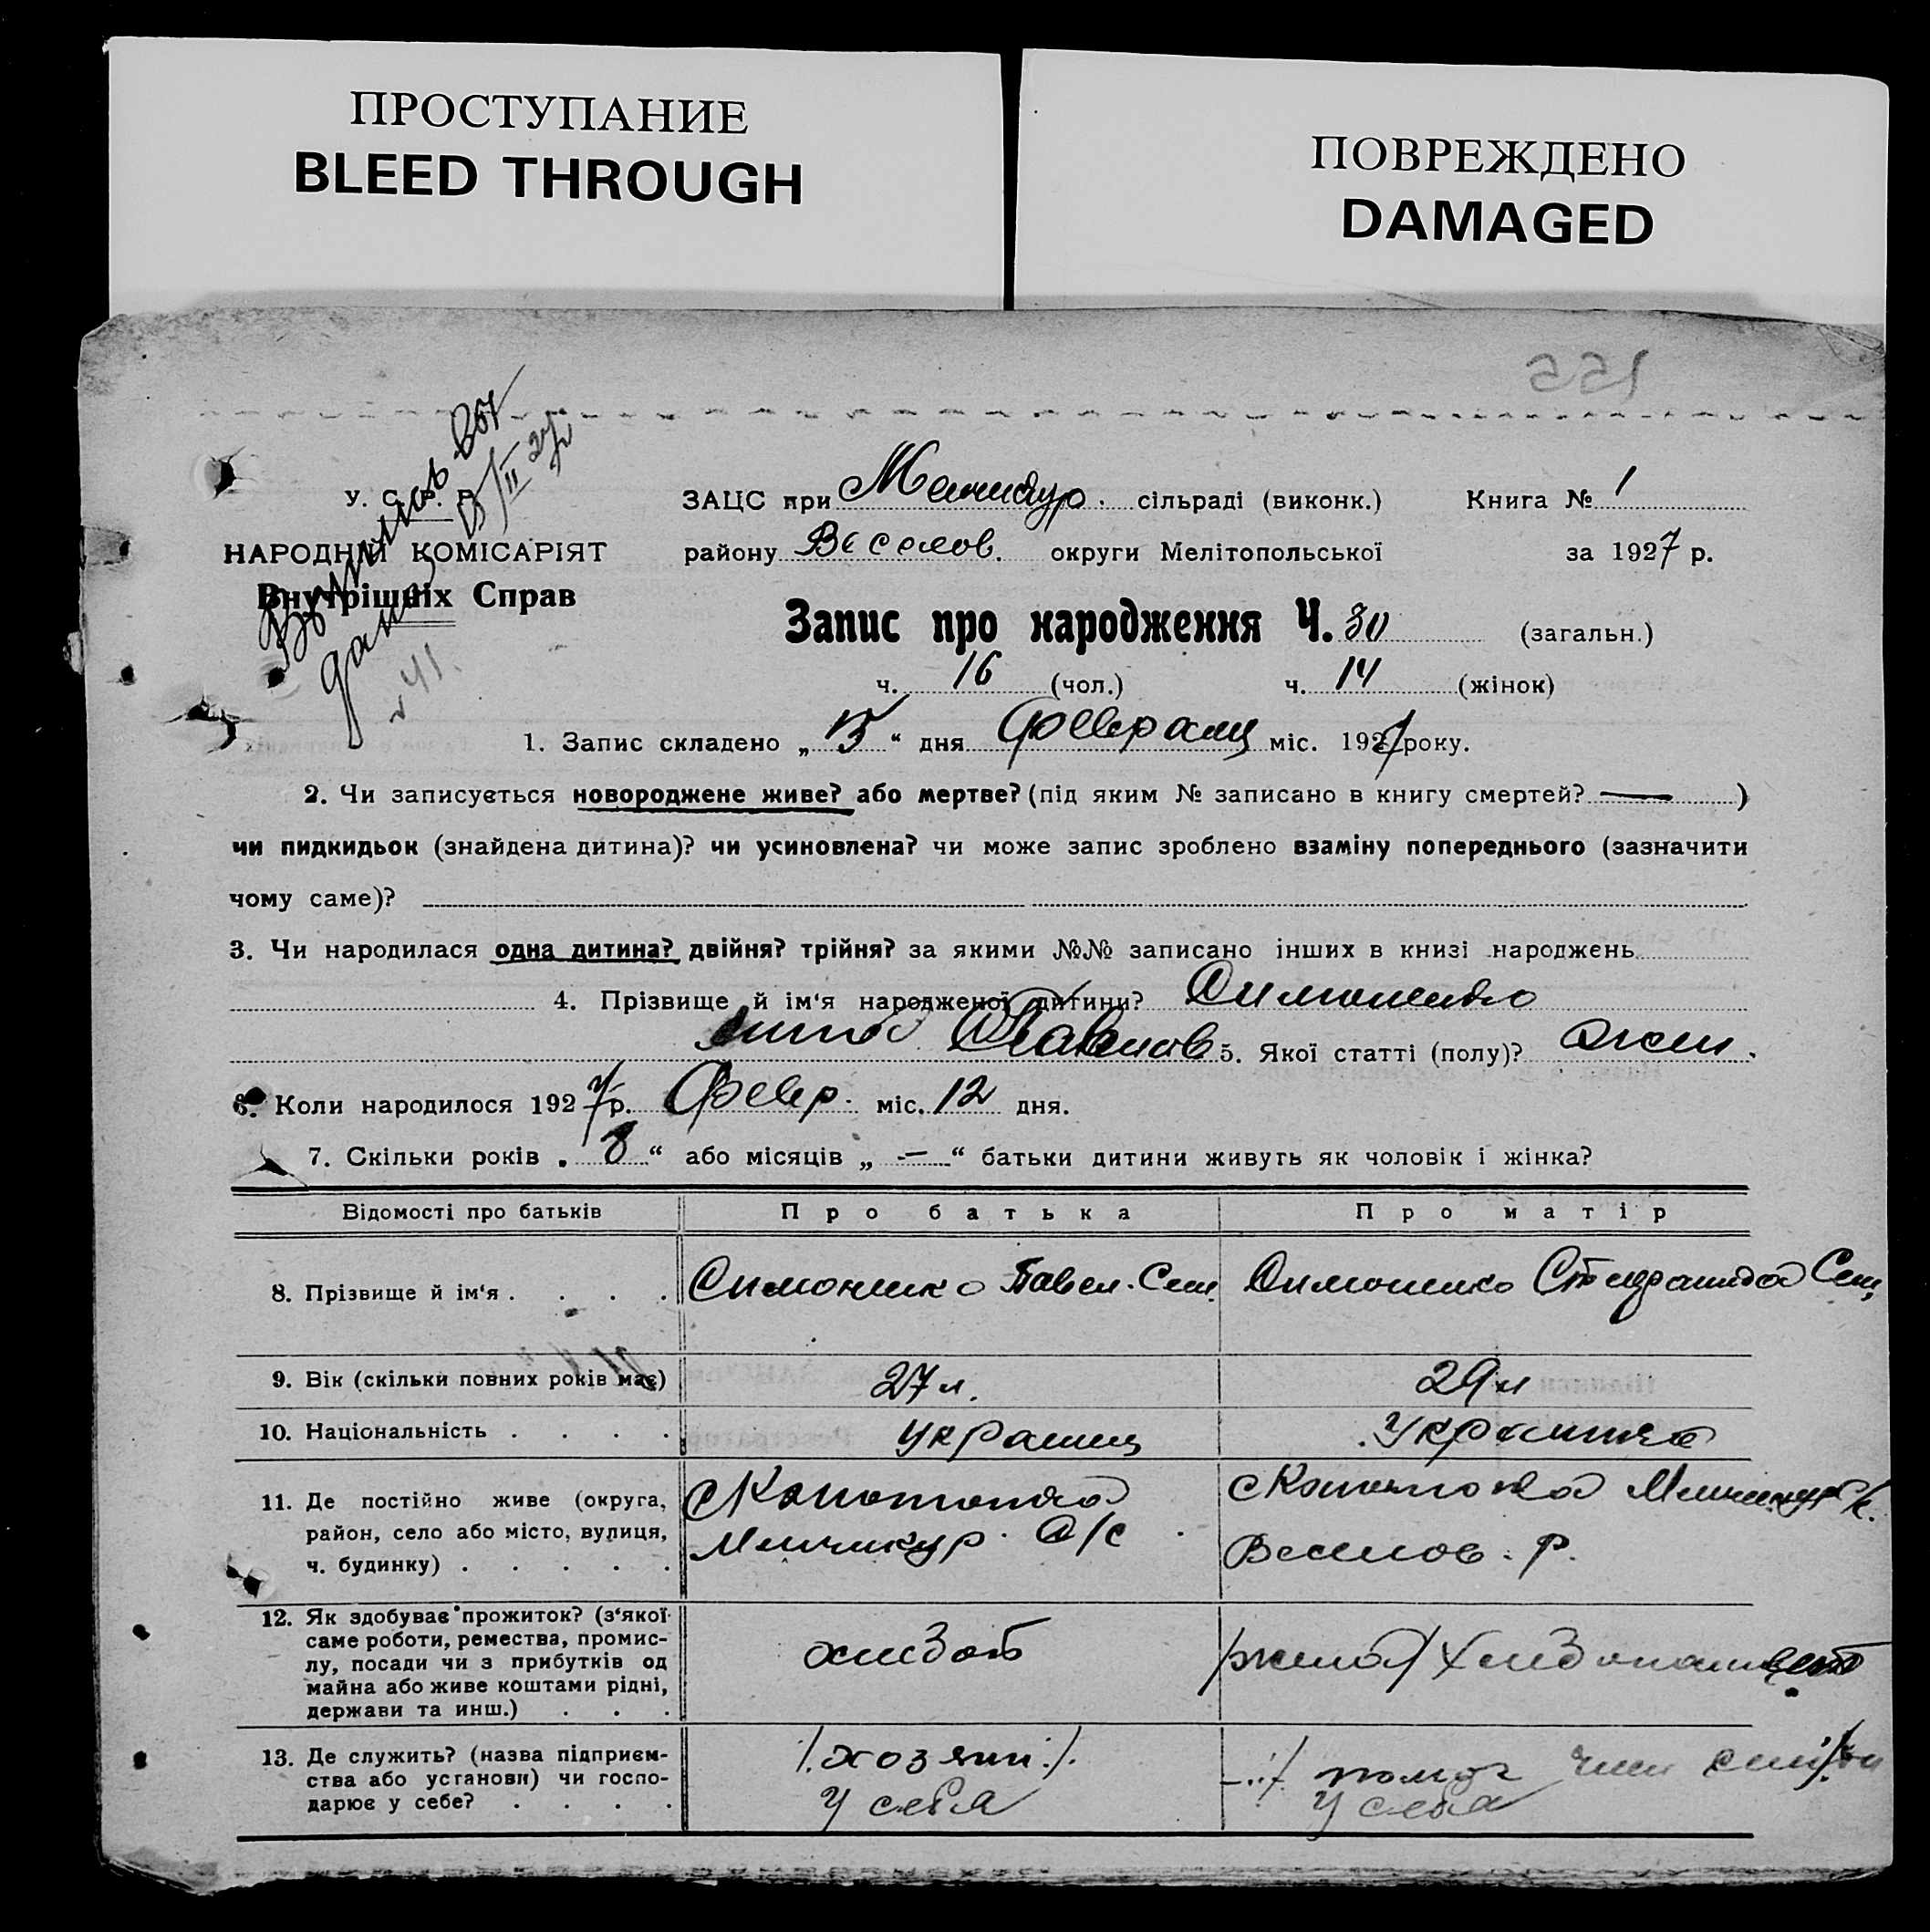 ПРОСТУПАНИЕ
BLEED THROUGH
ПОВРЕЖДЕНО
DAMAGED
155
У. С. Р. Р.
НАРОДНІЙ КОМІСАРІЯТ
Внутрішніх Справ
41.
ЗАЦС при сільраді (виконк.) Книга № 1
району Веселов. округи Мелітопольської за 1927 р.
Запис про народження Ч. 30 (загальн.)
ч. 16 (чол.) ч. 14 (жінок)
1. Запис складено „ 15 “ дня міс. 1927 року.
2. Чи записується новороджене живе? або мертве? (під яким № записано в книгу смертей? — )
чи пидкидьок (знайдена дитина)? чи усиновлена? чи може запис зроблено взаміну попереднього (зазначити
чому саме)?
3. Чи народилася одна дитина? двійня? трійня? за якими №№ записано інших в книзі народжень
4. Прізвище й ім‘я народженої дитини? Симоненко
5. Якої статті (полу)? жен.
6. Коли народилося 1927 р. Февр. міс. 12 дня.
7. Скільки років „ 8 “ або місяців „ — “ батьки дитини живуть як чоловік і жінка?
Відомості про батьків Про батька Про матір
8. Прізвище й ім‘я . . . . Симоненко Павел. Сем. Симоненко Сем.
9. Вік (скільки повних років має) 27 л. 29 л
10. Національність . . . . Украинец Украинка
11. Де постійно живе (округа,
район, село або місто, вулиця,
ч. будинку) . . . . .
с/с
Веселов. р.
12. Як здобуває прожиток? (з‘якої
саме роботи, ремества, промис-
лу, посади чи з прибутків од
майна або живе коштами рідні,
держави та инш.) . . .
хлебоп
/жена/
13. Де служить? (назва підприєм-
ства або установи) чи госпо-
дарює у себе? . . . .
/.хозяин./.
у себя
помог член семьи
у себя